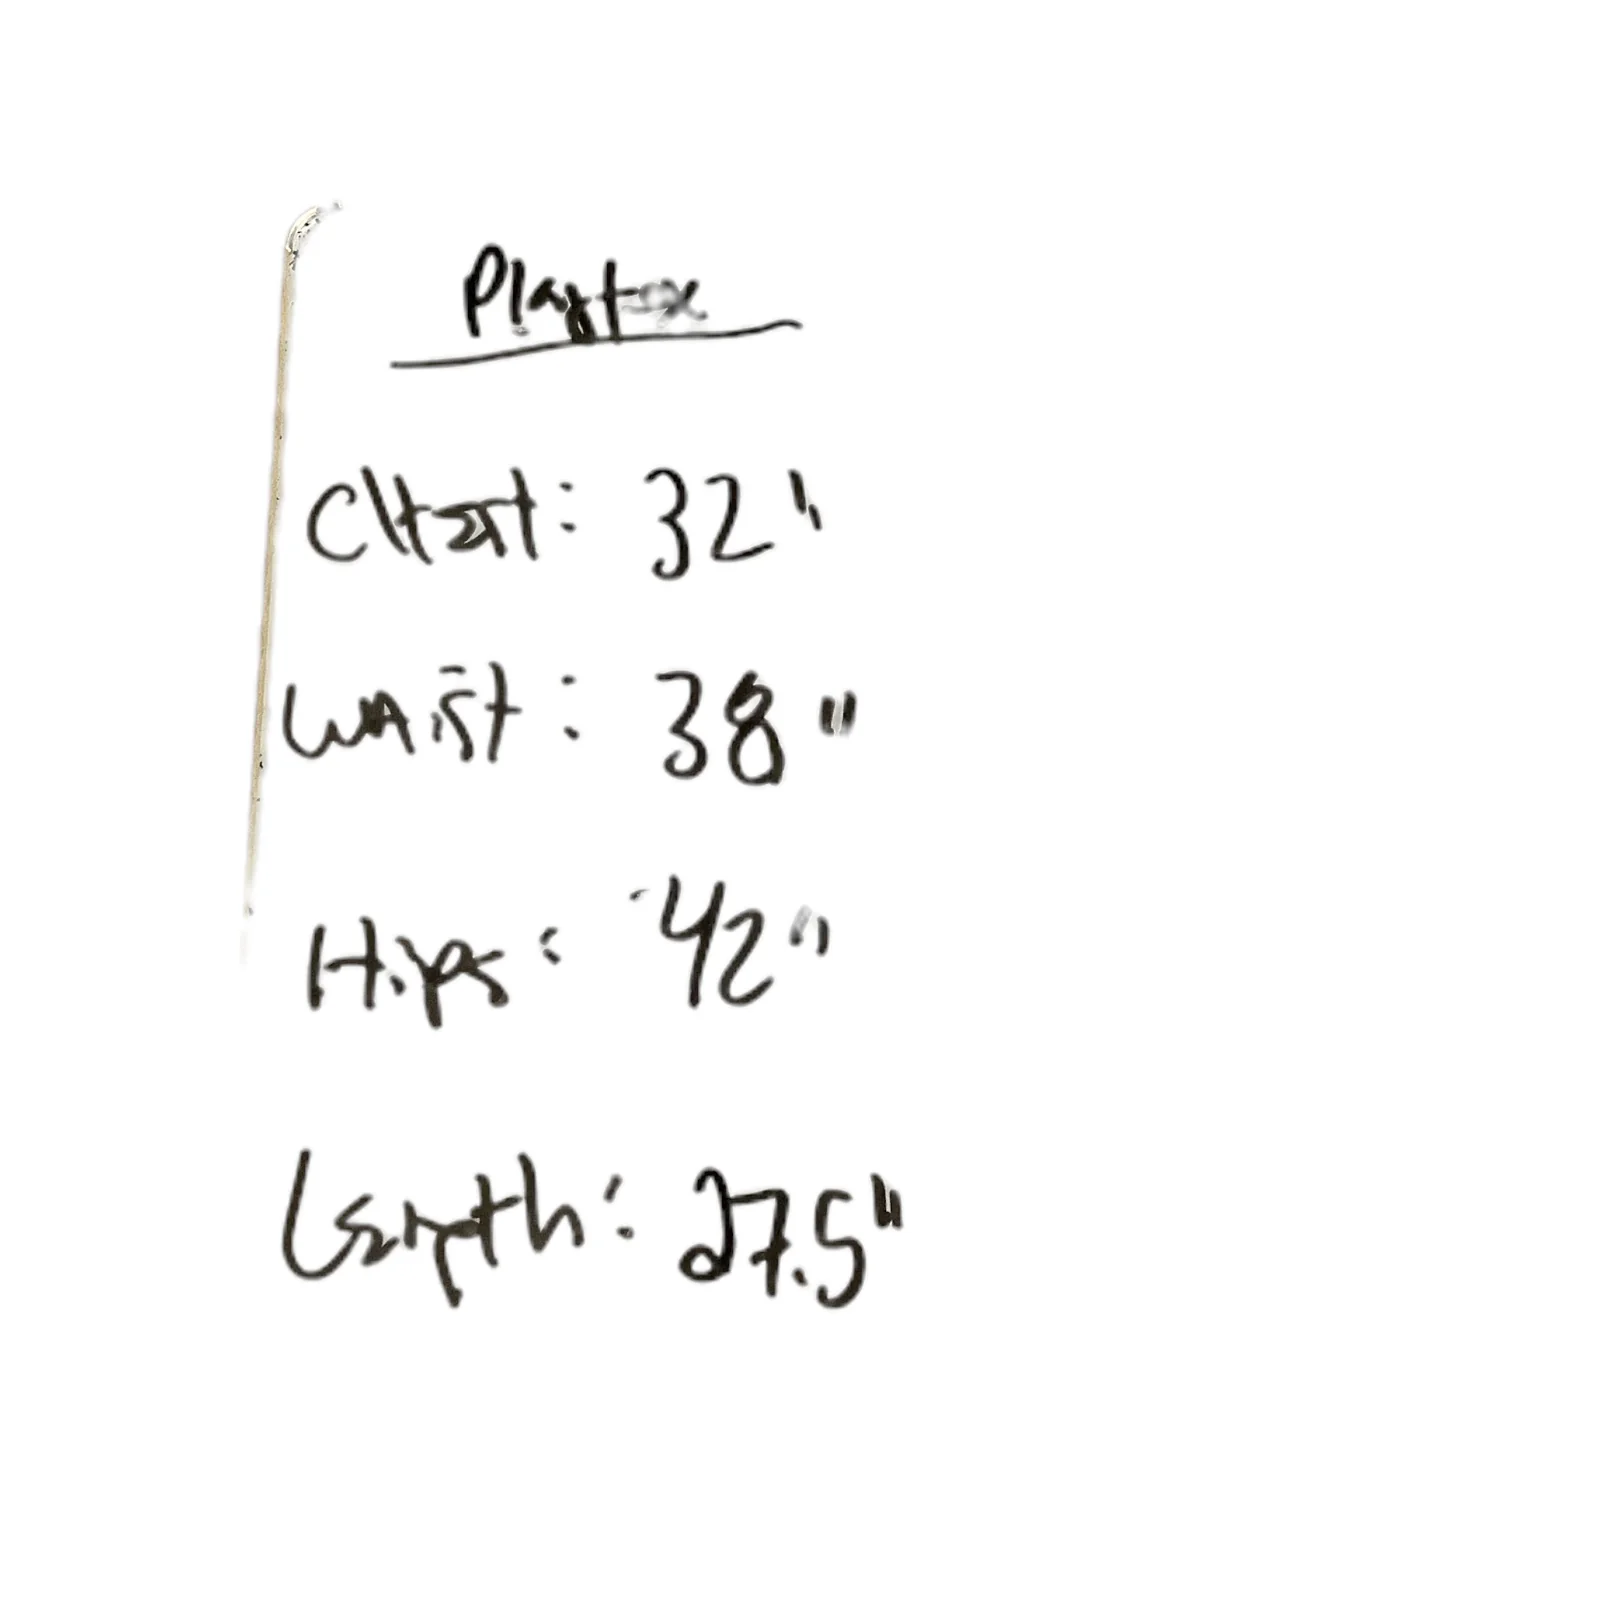 Playtex
Chest: 32"
Waist: 38"
Hips: 42"
Length: 27.5"